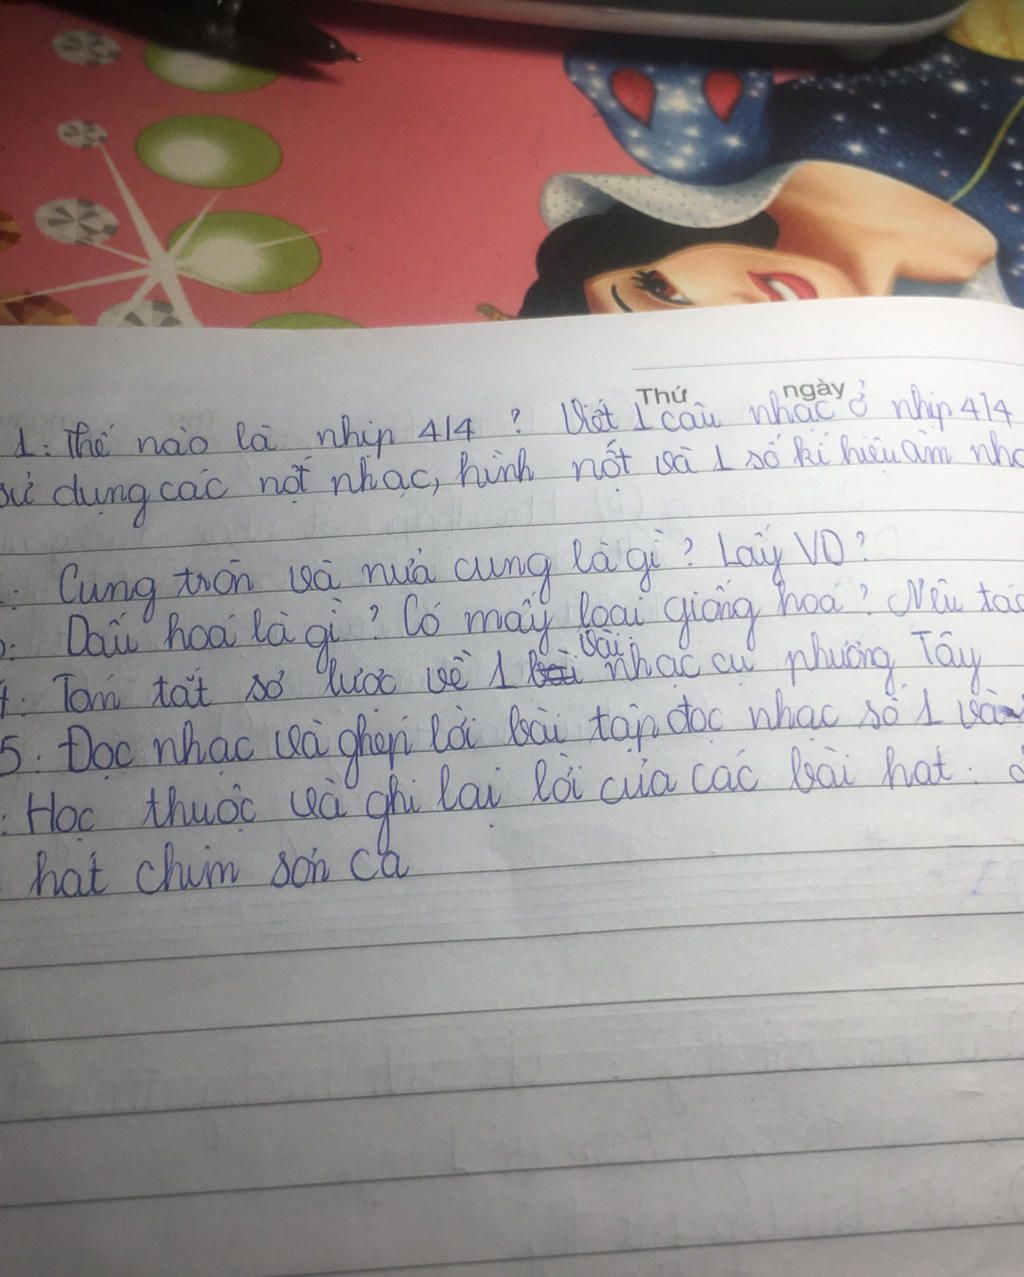 Thứ ngày
1: Thế nào là nhịp 4/4 ? Viết 1 câu nhạc ở nhịp 4/4
sử dụng các nốt nhạc, hình nốt và 1 số kí hiệu âm nhạ
: Cung tròn và nửa cung là gì? Lấy VD?
: Dấu hoá là gì? Có mấy loại giống hoá? Nêu tác
4. Tóm tắt sơ lược về 1 vài nhạc cụ phương Tây
5. Đọc nhạc và ghép lời bài tập đọc nhạc số 1 và
: Học thuộc và ghi lại lời của các bài hát:
hát chim sơn ca